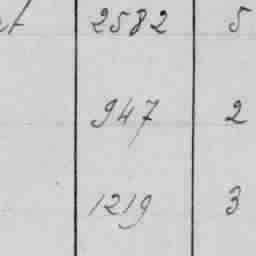 2582 5
947 2
1219 3